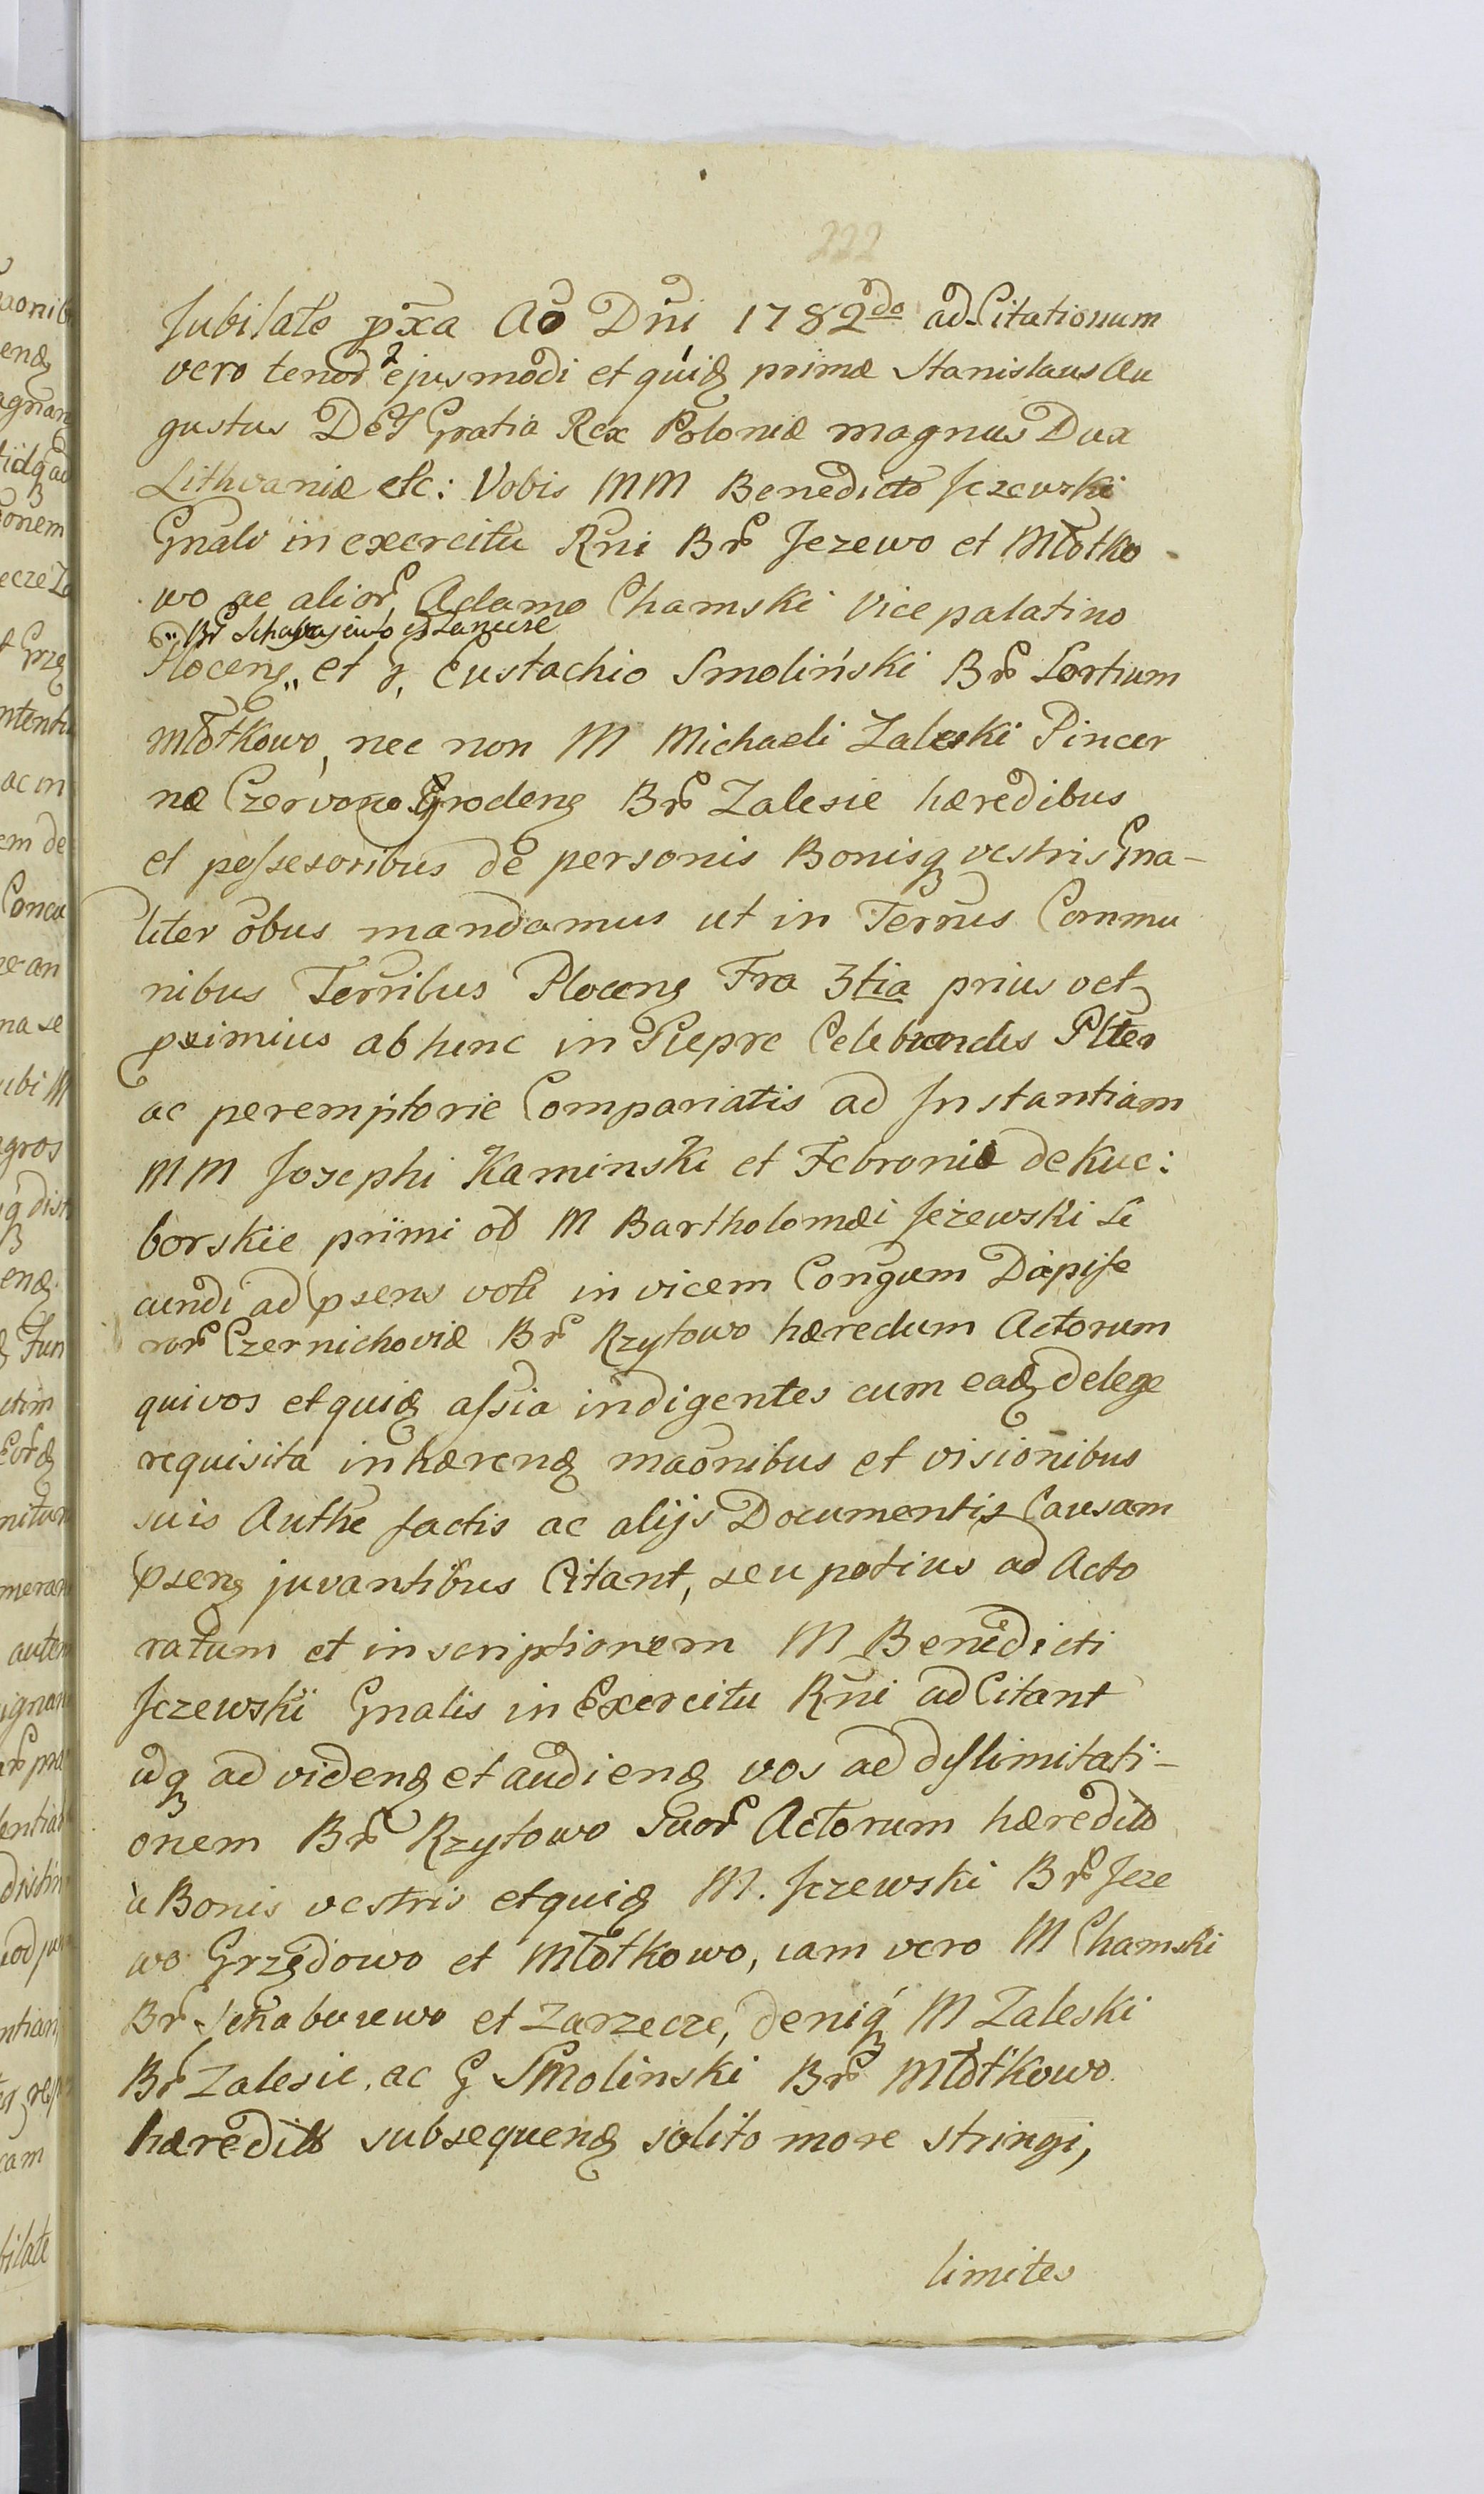 222
Jubilate pxa Ao Dni 1782do ad Citationum
vero tenor ejusmodi et quid primæ Stanislaus Au
gustus DeI Gratia Rex Poloniæ magnus Dux
Lithvaniæ etc: Vobis MM Benedicto Jezewski
Gnali in exercitu Rni Br Jezewo et Młotko
wo ac alior, Adamo Chamski Vice palatino
Br et
Ploceng„ et G, Eustachio Smoliński Br Sortium
Młotkowo, nec non M Michaeli Zaleski Pincer
næ Czerwono Grodeng Br Zalesie hæredibus
et possesoribus de personis Bonisq vestris Gna-
liter obus mandamus ut in Termis Commu
nibus Terribus Ploceng Fra 3tia prius oct
pximius ab hinc in Siepre Celebrandis Plter
ac peremptorie Compariatis ad Instantiam
MM Josephi Kaminski et Febroniæ de Kuc:
borskie primi ob M Bartholomæi Jeżewski Se
cundi ad psens voti in vicem Congum Dapife
ror Czernichoviæ Br Rzytowo hæredum Actorum
qui vos et quid assia indigentes cum ead de lege
requisita inhærend maonibus et visionibus
suis Authe factis ac alijs Documentis Causam
pseng juvantibus Citant, seu potius ad Acto
ratum et inscriptionem M Benedicti
Jezewski Gnalis in Exercitu Rni adCitant
idq ad vidend et audiend vos ad dislimitati-
onem Br Rzytowo suor Actorum hæredit
a Bonis vestris et quid M. Jezewski Br Jeze
wo Grzędowo et Młotkowo, iam vero M Chamski
Br et Zarzecze, deniq M Zaleski
Br Zalesie, ac G Smolinski Br Młotkowo
hæredit subsequend solito more stringi,
limites